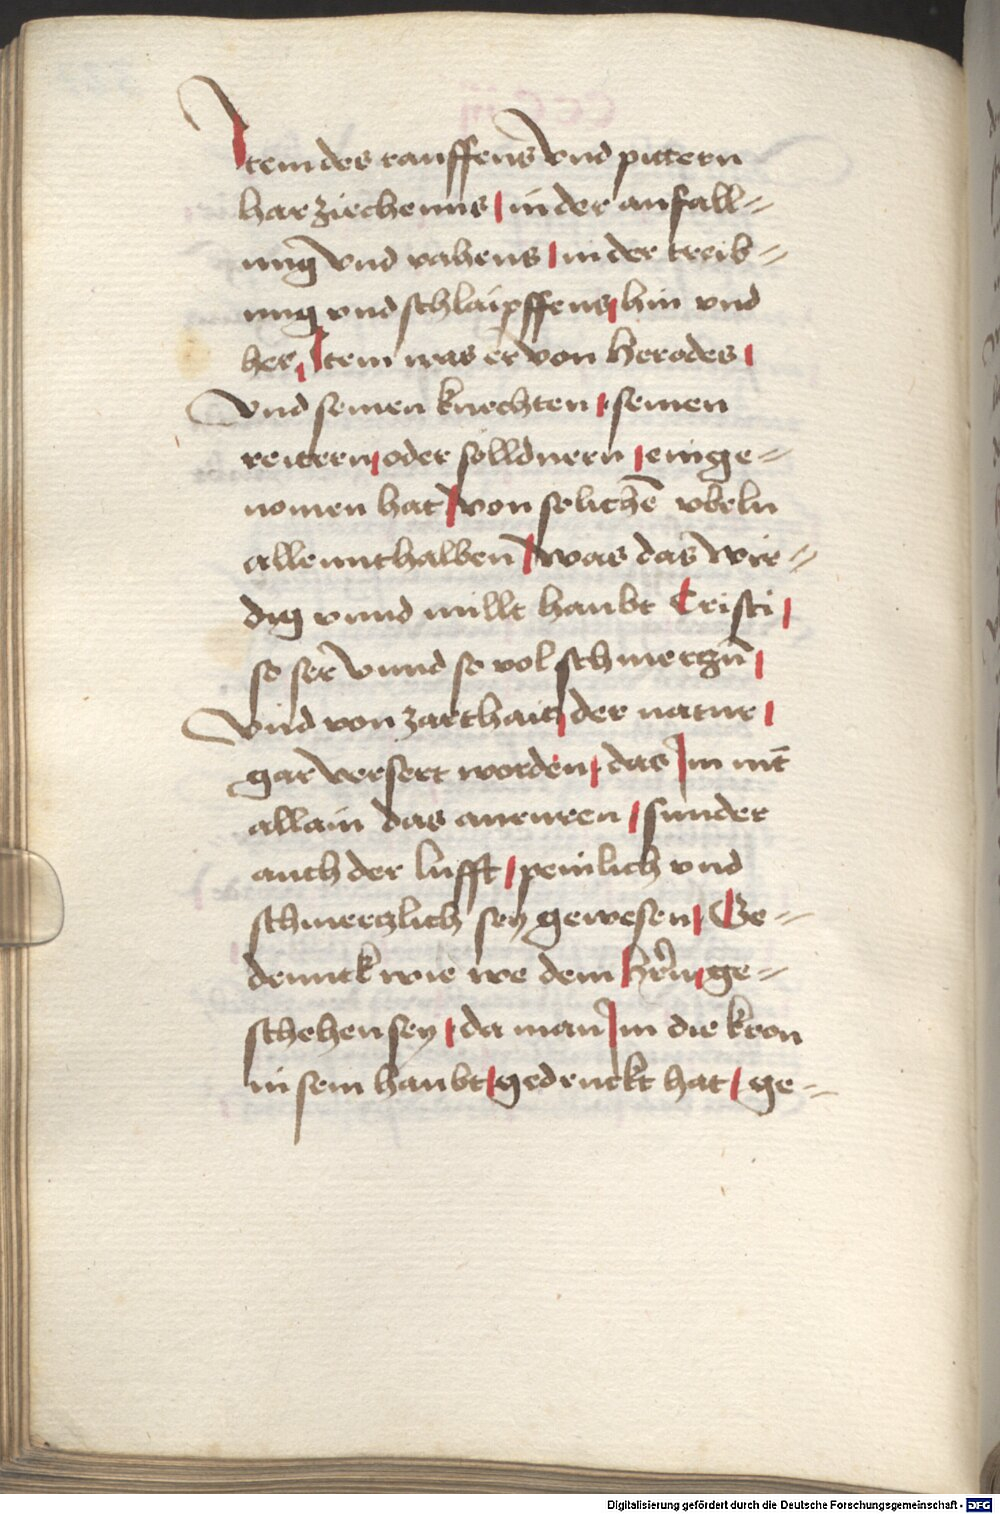 Item des rauffens vnd pittern
harziechenns / in der anfall=
ung vnd vahens / in der treib=
ung vnd schlaipffens / hin vnd
her / Item was er von herodes /
Vnd seinen knechten / seinen
reittern / oder sölldnern / einge=
nomen hat / von solichē vbeln
allennthalben / was das wir=
dig vnnd millt haubt Cristi /
so ser vnnd so vol schmerczn̄ /
Vnd von zarthait / der natur /
gar versert worden / das Im nit̄
allain das anruren / sunder
auch der lufft / peinlich vnd
schmerczlich sey gewesen / Ge=
dennck wie we dem hr̄n ge=
schehen sey / da man Im die kron
in sein haubt / gedruckt hat / ge=
Digitalisierung gefördert durch die Deutsche Forschungsgemeinschaft - DFG